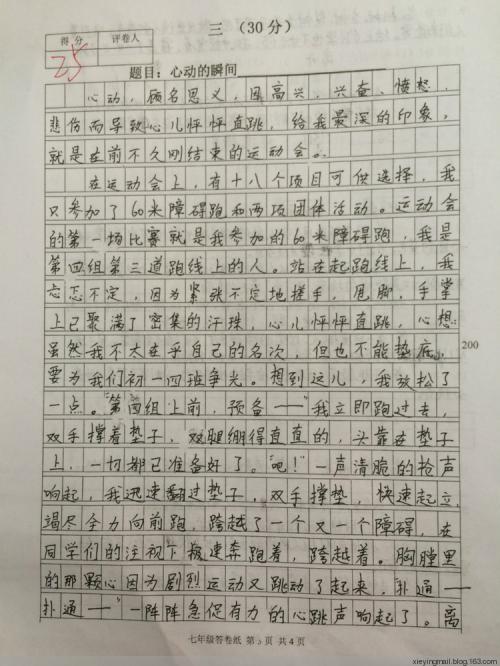 三（30分）
得分 评卷人
25
题目：心动的瞬间
心动，顾名思义，因高兴，兴奋，愤怒，
悲伤而导致心儿怦怦直跳，给我最深的印象，
就是在前不久刚结束的运动会。
在运动会上，有十八个项目可供选择，我
只参加了60米障碍跑和两项团体活动。运动会
的第一场比赛就是我参加的60米障碍跑，我是
第四组第三道跑线上的人。站在起跑线上，我
忐忑不定，因为紧张不定地搓手，甩脚，手掌
上已聚满了密集的汗珠，心儿怦怦直跳，心想：
虽然我不太在乎自己的名次，但也不能垫底，
200
要为我们初一四班争光。想到这儿，我放松了
一点。“第四组上前，预备——”我立即跑过去，
双手撑着垫子，双腿绷得直直的，头靠在垫子
上，一切都已准备好了。“吧！”一声清脆的枪声
响起，我迅速翻过垫子，双手撑垫，快速起立，
竭尽全力向前跑，跨越了一个又一个障碍，在
同学们的注视下极速奔跑着，跨越着。胸膛里
的那颗心因为剧烈运动又跳动了起来，“扑通——
扑通——”一阵阵急促有力的心跳声响起了。离
七年级答卷纸 第3页 共4页
xieyingmail.blog.163.com